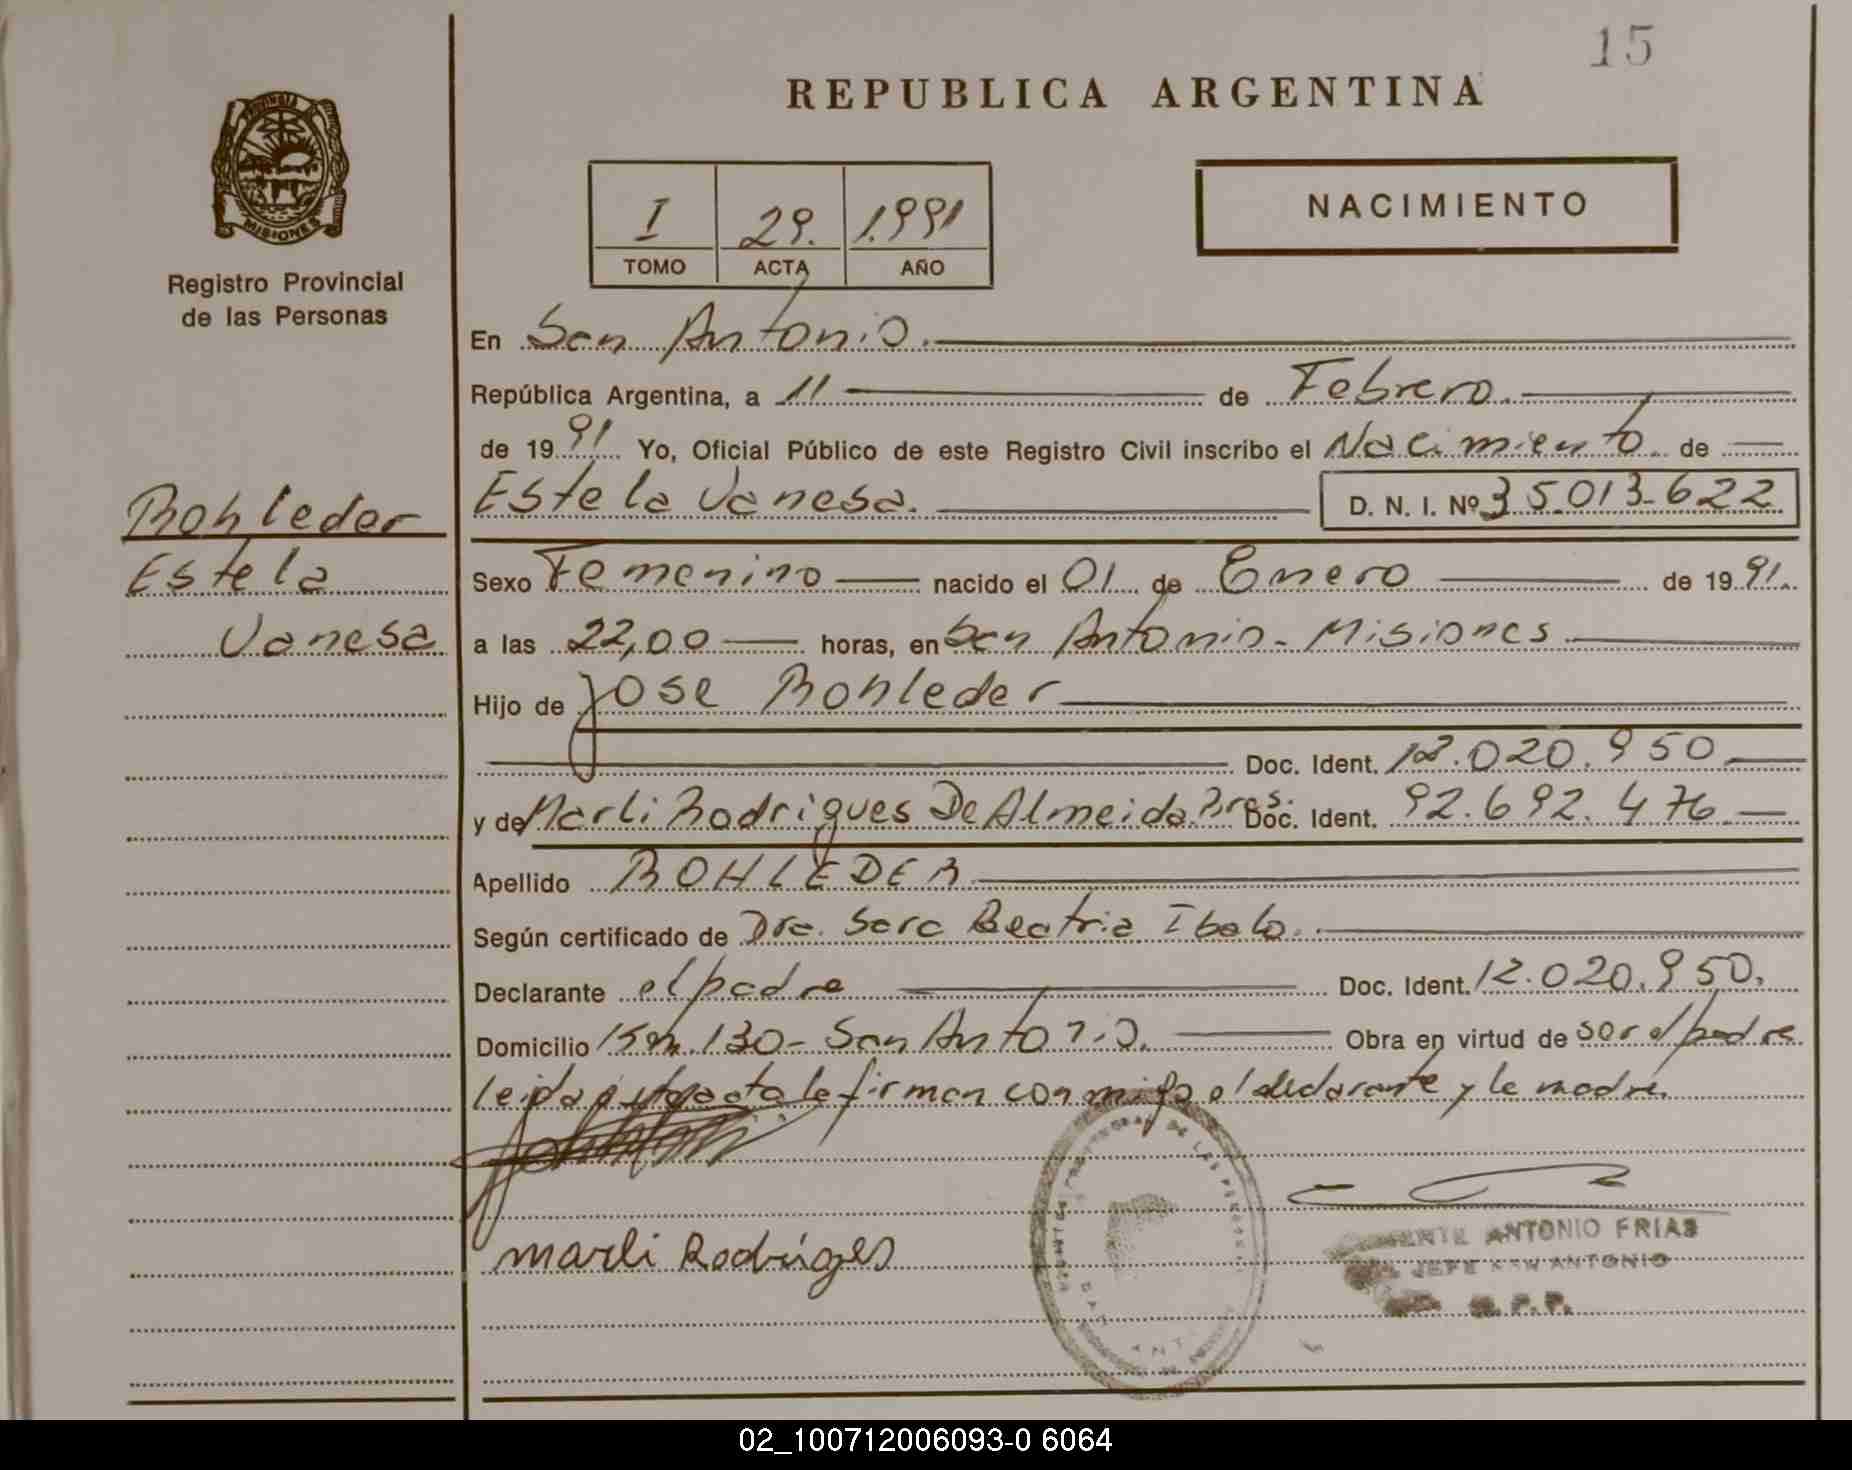 15
REPUBLICA ARGENTINA
PROVINCIA
MISIONES
Registro Provincial
de las Personas
I 29. 1.991
TOMO ACTA AÑO
NACIMIENTO
En San Antonio.
República Argentina, a 11 de Febrero.
de 1991 Yo, Oficial Público de este Registro Civil inscribo el Nacimiento. de
Estela Vanesa. D. N. I. Nº 35.013-622
Rohleder
Estela
Vanesa
Sexo Femenino nacido el 01 de Enero de 1991.
a las 22,00 horas, en San Antonio - Misiones
Hijo de Jose Rohleder
Doc. Ident. 12.020.950
y de Marli Rodrigues De Almeida. Bras. Doc. Ident. 92.692.476
Apellido ROHLEDER
Según certificado de Dra. Sara Beatriz Ibalo.
Declarante el padre Doc. Ident. 12.020.950.
Domicilio Km. 130 - San Antonio. Obra en virtud de ser el padre
leida esta acta la firman conmigo el declarante y la madre.
Marli Rodriges
ANTONIO FRIAS
JEFE SAN ANTONIO
R. P. P.
02_100712006093-0 6064